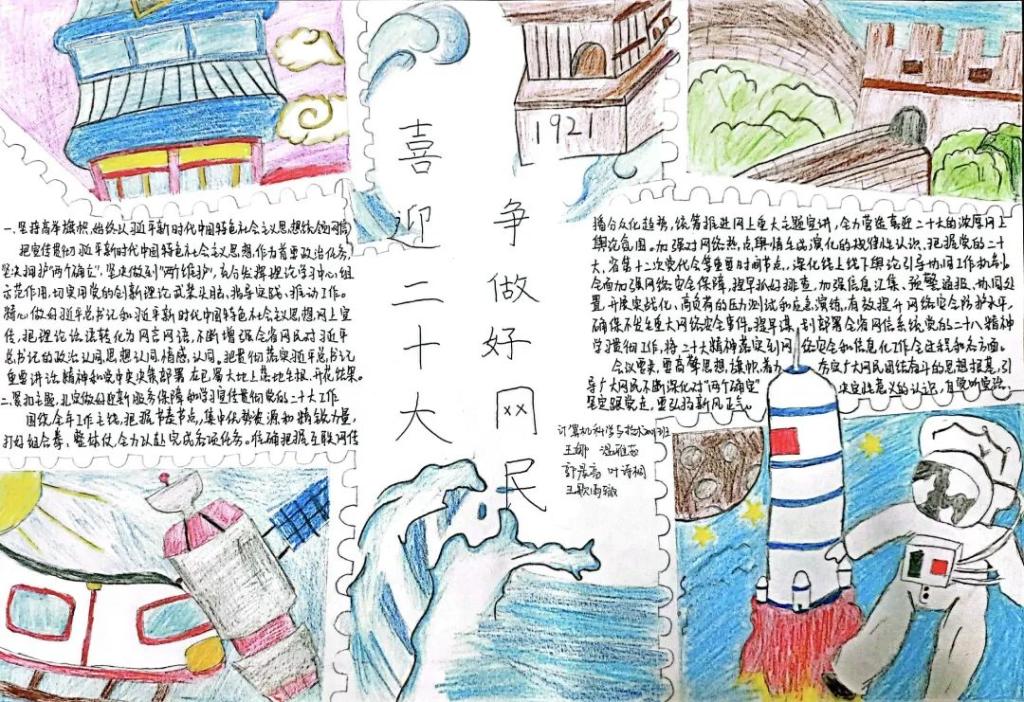 喜迎二十大
争做好网民
1921
一.坚持高举旗帜,始终以习近平新时代中国特色社会主义思想统领网信
把宣传贯彻习近平新时代中国特色社会主义思想作为首要政治任务,
坚决拥护"两个确立",坚决做到"两个维护",充分发挥理论学习中心组
示范作用,切实用党的创新理论武装头脑,指导实践、推动工作。
精心做好习近平总书记和习近平新时代中国特色社会主义思想网上宣
传,把理论话语转化为网言网语,不断增强全省网民对习近平
总书记的政治认同、思想认同、情感认同。把贯彻落实习近平总书记
重要讲话精神和党中央决策部署在巴蜀大地上落地生根、开花结果。
二.聚焦主题,扎实做好迎新服务保障和学习宣传贯彻党的二十大工作
围绕全年工作主线,把握节奏节点,集中优势资源和精锐力量,
打好组合拳、整体仗,全力以赴完成各项任务。准确把握互联网传
播分众化趋势,统筹推进网上重大主题宣讲,全力营造喜迎二十大的浓厚网上
舆论氛围。加强对网络热点舆情生成演化的规律性认识,把握党的二十
大,省第十二次党代会等重要时间节点,深化线上线下舆论引导协同工作机制。
全面加强网络安全保障,提早抓好排查,加强信息汇集、预警通报、协同处
置,开展实战化,高负荷的压力测试和应急演练,有效提升网络安全防护水平,
确保不发生重大网络安全事件。提早谋划部署全省网信系统党的二十八精神
学习贯彻工作,将二十大精神落实到网络安全和信息化工作全过程和各方面。
会议要求,要高擎思想旗帜,着力夯实广大网民团结奋斗的思想根基,引
导广大网民不断深化对"两个确立"决定性意义的认识,自觉听党话、
坚定跟党走,要弘扬新风正气。
计算机科学与技术2001班
王娜 温雅茹